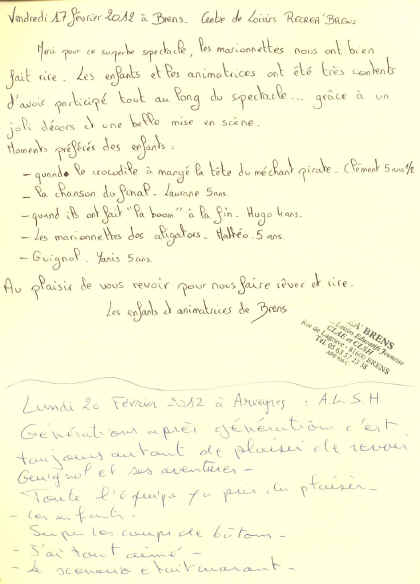 Vendredi 17 février 2012 à Brens. Centre de Loisirs RECREA'BRENS
Merci pour ce superbe spectacle, les marionnettes nous ont bien
fait rire. Les enfants et les animatrices ont été très contents
d'avoir participé tout au long du spectacle... grâce à un
joli décors et une belle mise en scène.
Moments préférés des enfants :
- quand le crocodile à mangé la tête du méchant pirate. Clément 5 ans 1/2
- la chanson du final. Laurane 5ans
- quand ils ont fait "la boom" à la fin. Hugo 4ans.
- Les marionnettes des aligators. Mattéo 5 ans.
- Guignol. Yanis 5ans.
Au plaisir de vous revoir pour nous faire rêver et rire.
Les enfants et animatrices de Brens
BRENS
Loisirs Educatifs Jeunesse
CLAE et CLSH
81600 BRENS
Lundi 20 Février 2012 à Arveyres : A.L.S.H
Générations après génération c'est
toujours autant de plaisir de revoir
Guignol et ses aventures -
Toute l'équipe y a pris du plaisir -
- Les enfants :
Super les coups de bâtons -
- J'ai tout aimé -
- Le scenario était marrant -